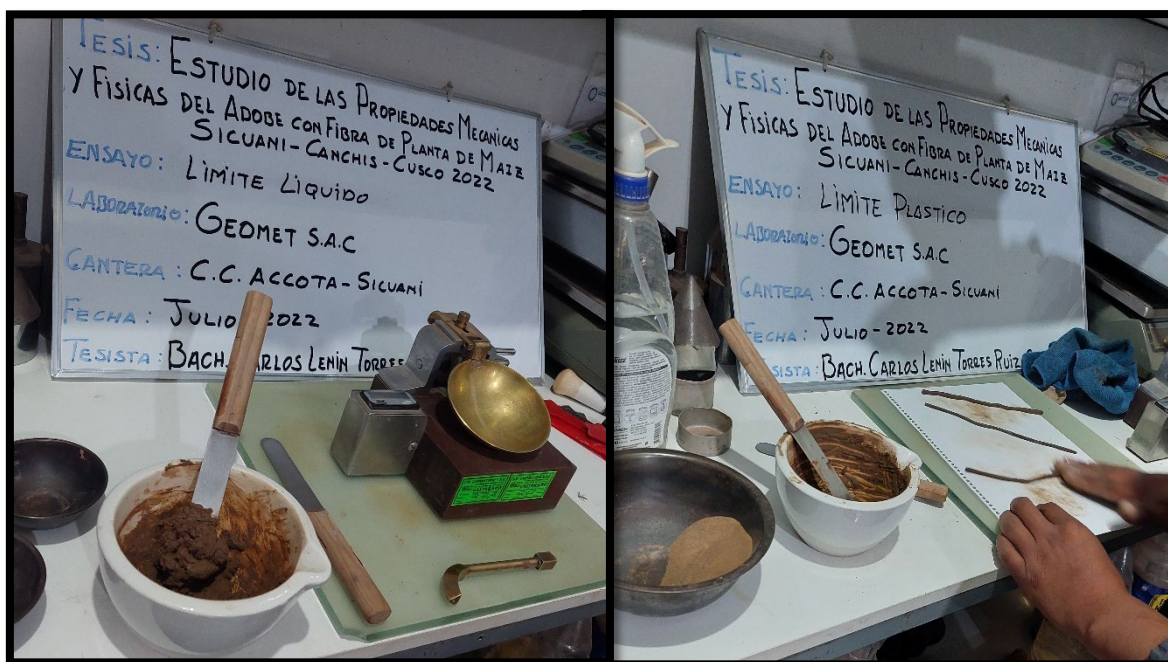 TESIS: ESTUDIO DE LAS PROPIEDADES MECANICAS
Y FISICAS DEL ADOBE CON FIBRA DE PLANTA DE MAIZ
SICUANI-CANCHIS-CUSCO 2022
ENSAYO: LIMITE LIQUIDO
LABORATORIO: GEOMET S.A.C
CANTERA: C.C. ACCOTA-SICUANI
FECHA: JULIO-2022
TESISTA: BACH. CARLOS LENIN TORRES
TESIS: ESTUDIO DE LAS PROPIEDADES MECANICAS
Y FISICAS DEL ADOBE CON FIBRA DE PLANTA DE MAIZ
SICUANI-CANCHIS-CUSCO 2022
ENSAYO: LIMITE PLASTICO
LABORATORIO: GEOMET S.A.C
CANTERA: C.C. ACCOTA-SICUANI
FECHA: JULIO-2022
SISTA: BACH. CARLOS LENIN TORRES RUIZ